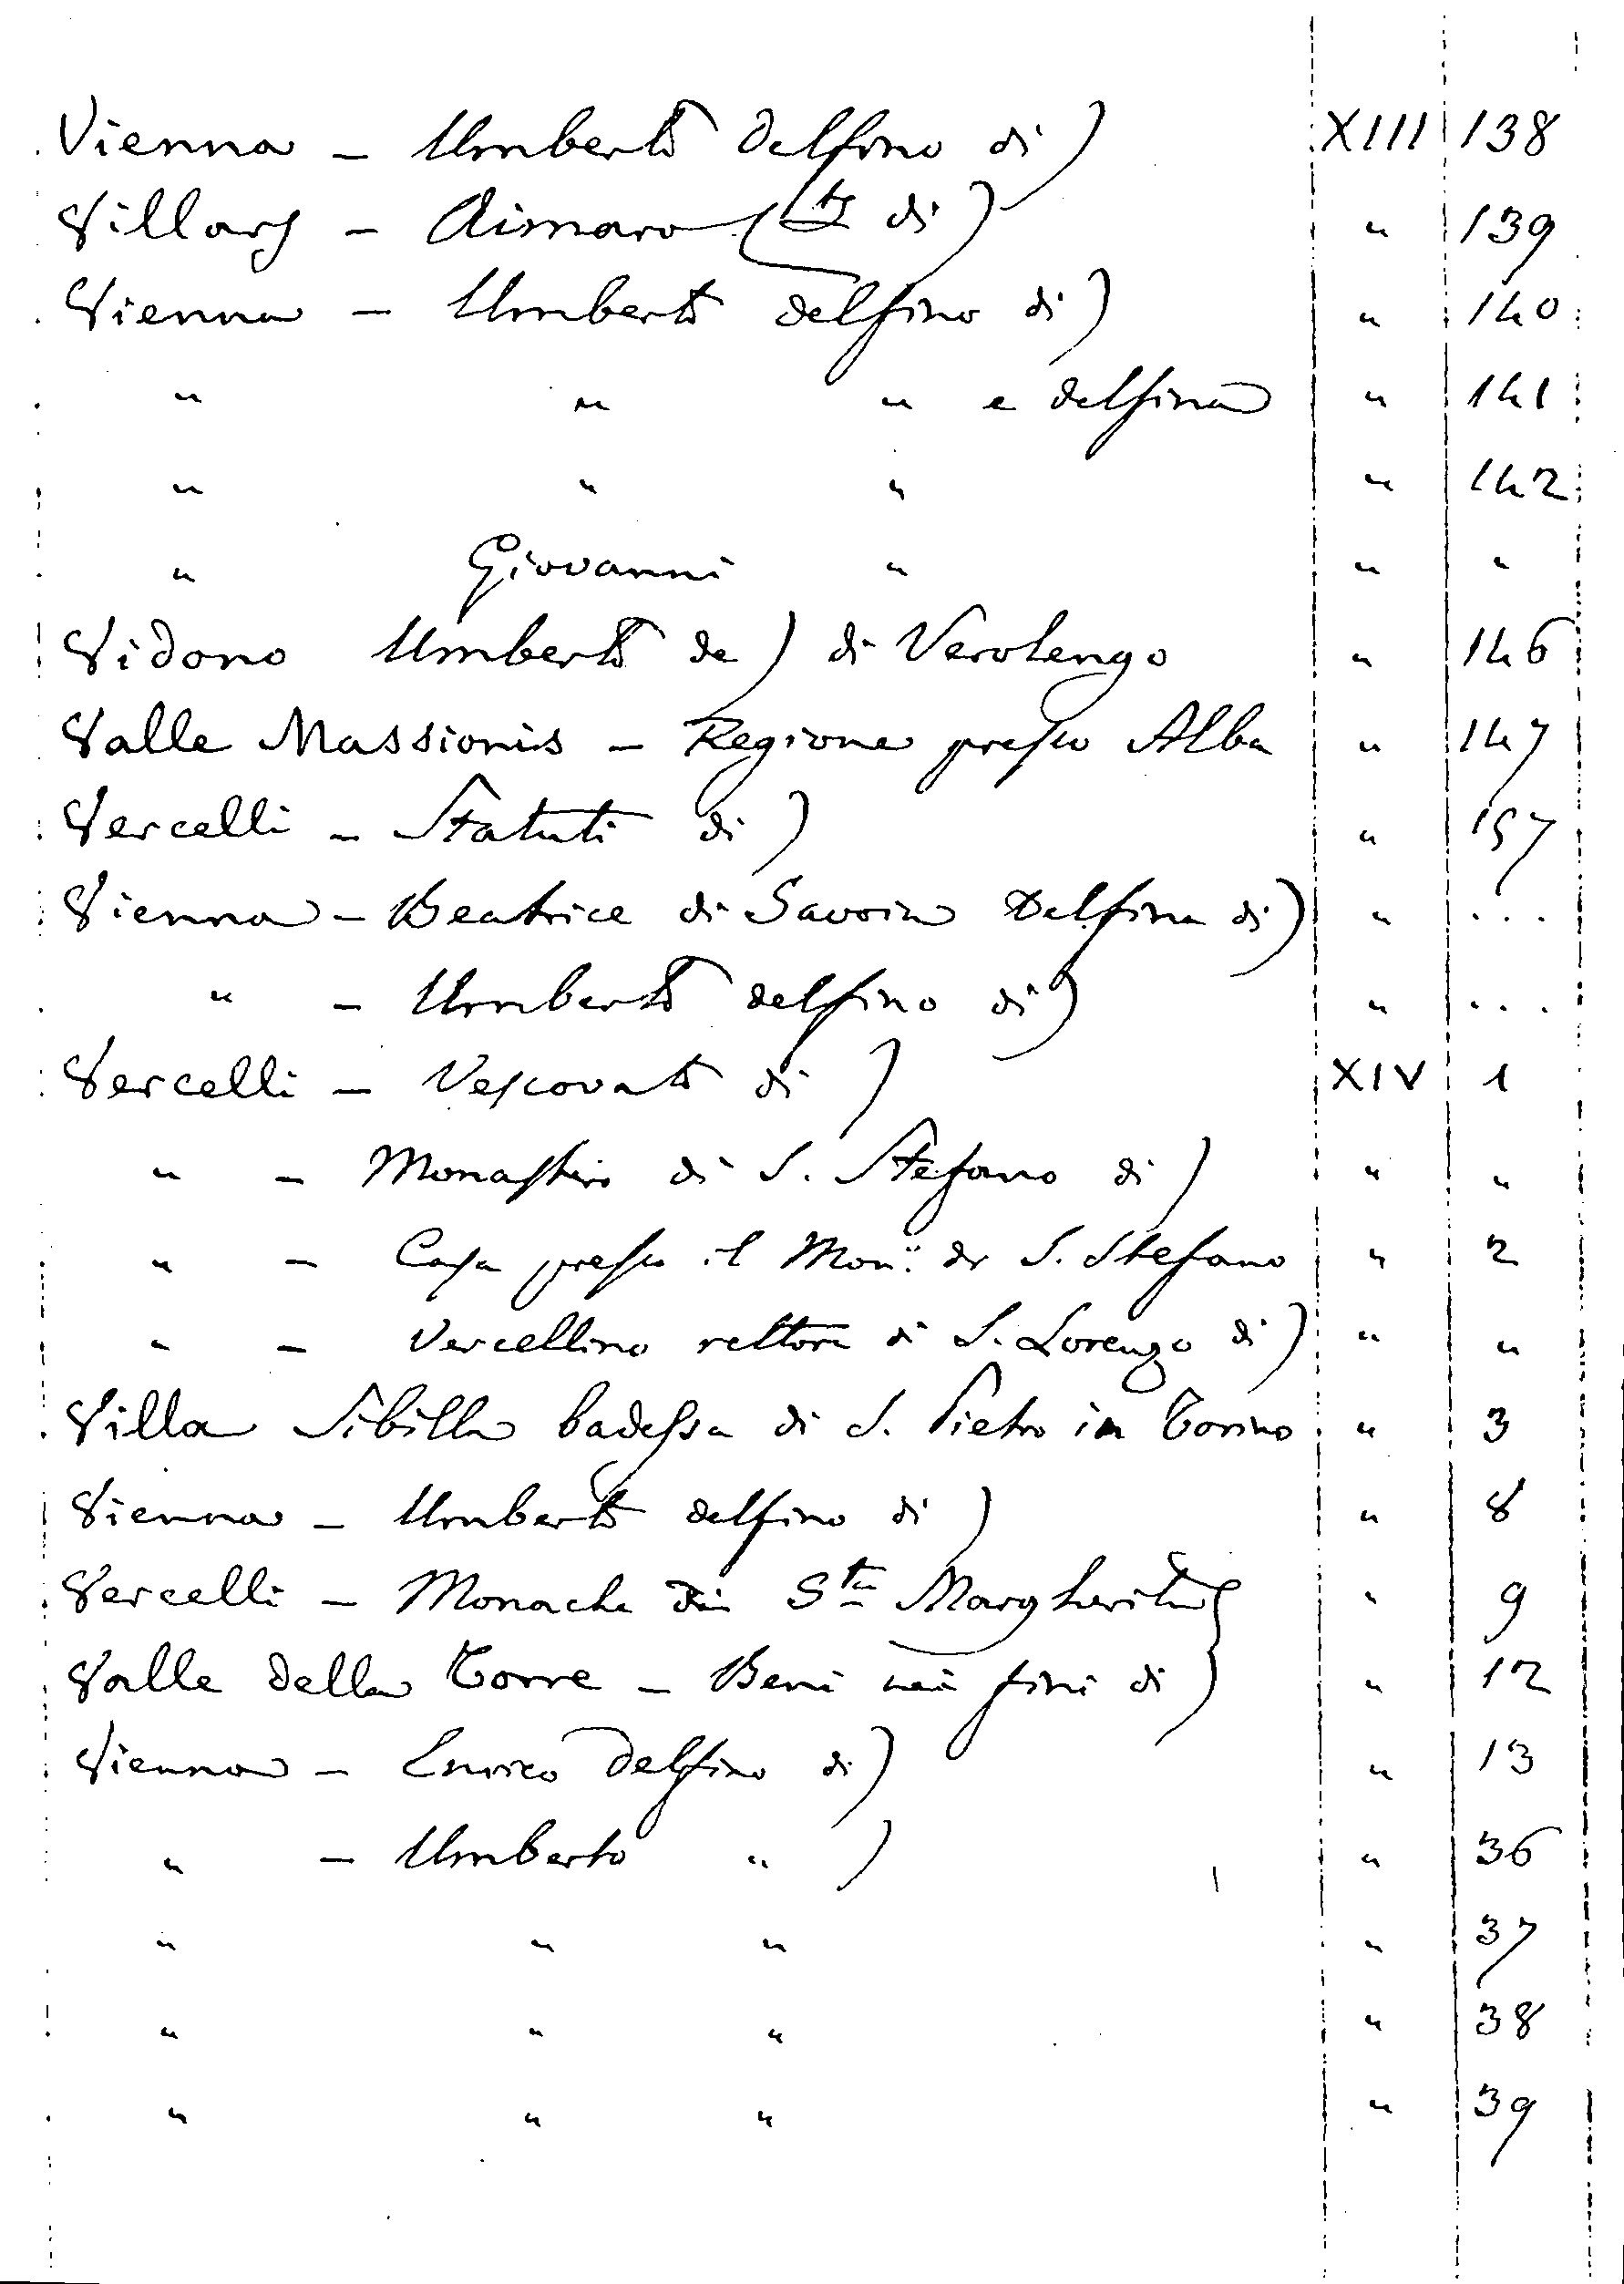 Vienna — Umberto Delfino di) XIII 138
Villars — Aimaro ( di) " 139
Vienna — Umberto delfino di) " 140
" " " e delfina " 141
" " " " 142
" Giovanni " " "
Vidono Umberto de) di Verolengo " 146
Valle Massionis — Regione presso Alba " 147
Vercelli — Statuti di) " 157
Vienna — Beatrice di Savoia Delfina di) " ...
" — Umberto delfino di) " ...
Vercelli — Vescovato di) XIV 1
" — Monastero di S. Stefano di) " "
" — Casa presso il Mon: di S. Stefano " 2
" — Vercellino rettore di S. Lorenzo di) " "
Villa Sibilla badessa di S. Pietro in Torino " 3
Vienna — Umberto delfino di) " 8
Vercelli — Monache di Sta Margherita " 9
Valle della Torre — Beni nei fini di) " 12
Vienna — Enrico Delfino di) " 13
" — Umberto " ) " 36
" " " " 37
" " " " 38
" " " " 39